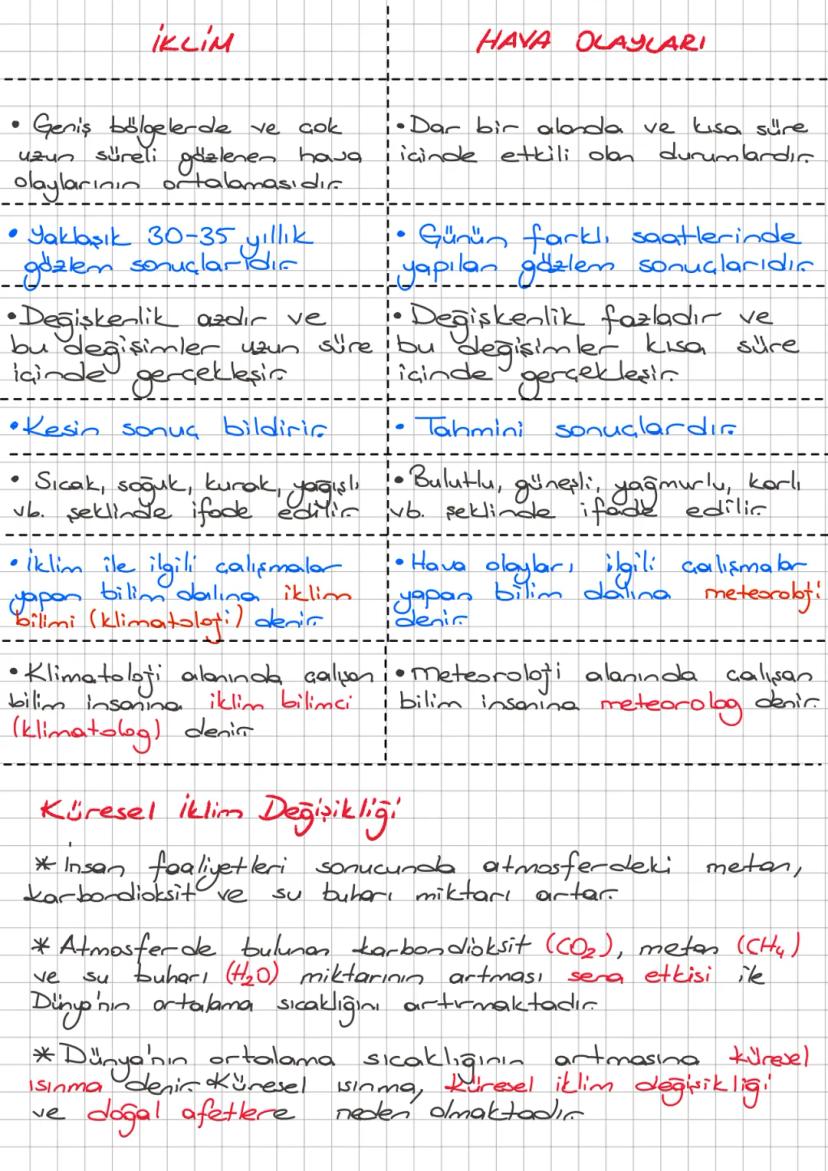 İKLİM
HAVA OLAYLARI
• Geniş bölgelerde ve çok
uzun süreli gözlenen hava
olaylarının ortalamasıdır.
• Dar bir alanda ve kısa süre
içinde etkili olan durumlardır.
• Yaklaşık 30-35 yıllık
gözlem sonuçlarıdır.
• Günün farklı saatlerinde
yapılan gözlem sonuçlarıdır.
• Değişkenlik azdır ve
bu değişimler uzun süre
içinde gerçekleşir.
• Değişkenlik fazladır ve
bu değişimler kısa süre
içinde gerçekleşir.
• Kesin sonuç bildirir.
• Tahmini sonuçlardır.
• Sıcak, soğuk, kurak, yağışlı
vb. şeklinde ifade edilir.
• Bulutlu, güneşli, yağmurlu, karlı
vb. şeklinde ifade edilir.
• İklim ile ilgili çalışmalar
yapan bilim dalına iklim
bilimi (klimatoloji) denir.
• Hava olayları ilgili çalışmalar
yapan bilim dalına meteoroloji
denir.
• Klimatoloji alanında çalışan
bilim insanına iklim bilimci
(klimatolog) denir.
• meteoroloji alanında çalışan
bilim insanına meteorolog denir.
Küresel İklim Değişikliği
* İnsan faaliyetleri sonucunda atmosferdeki metan,
karbondioksit ve su buharı miktarı artar.
* Atmosferde bulunan karbondioksit (CO₂), metan (CH₄)
ve su buharı (H₂O) miktarının artması sera etkisi ile
Dünya'nın ortalama sıcaklığını artırmaktadır.
* Dünya'nın ortalama sıcaklığının artmasına küresel
ısınma denir. Küresel ısınma, küresel iklim değişikliği
ve doğal afetlere neden olmaktadır.